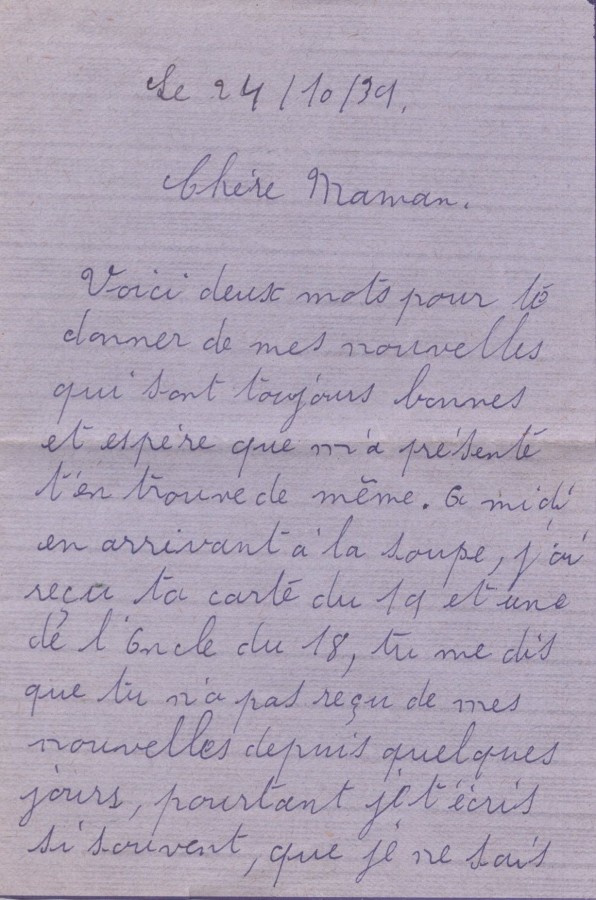 Le 24/10/39.
Chère Maman.
Voici deux mots pour te
donner de mes nouvelles
qui sont toujours bonnes
et espère que m'a présente
t'en trouve de même. A midi
en arrivant à la soupe, j'ai
reçu ta carte du 19 et une
de l'Oncle du 18, tu me dis
que tu n'a pas reçu de mes
nouvelles depuis quelques
jours, pourtant je t'écris
si souvent, que je ne sais